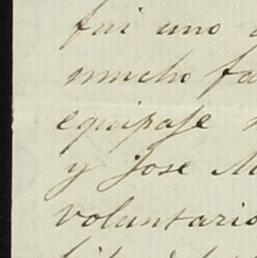 fui uno
mucho fa
equipaje
y Jose M
voluntario